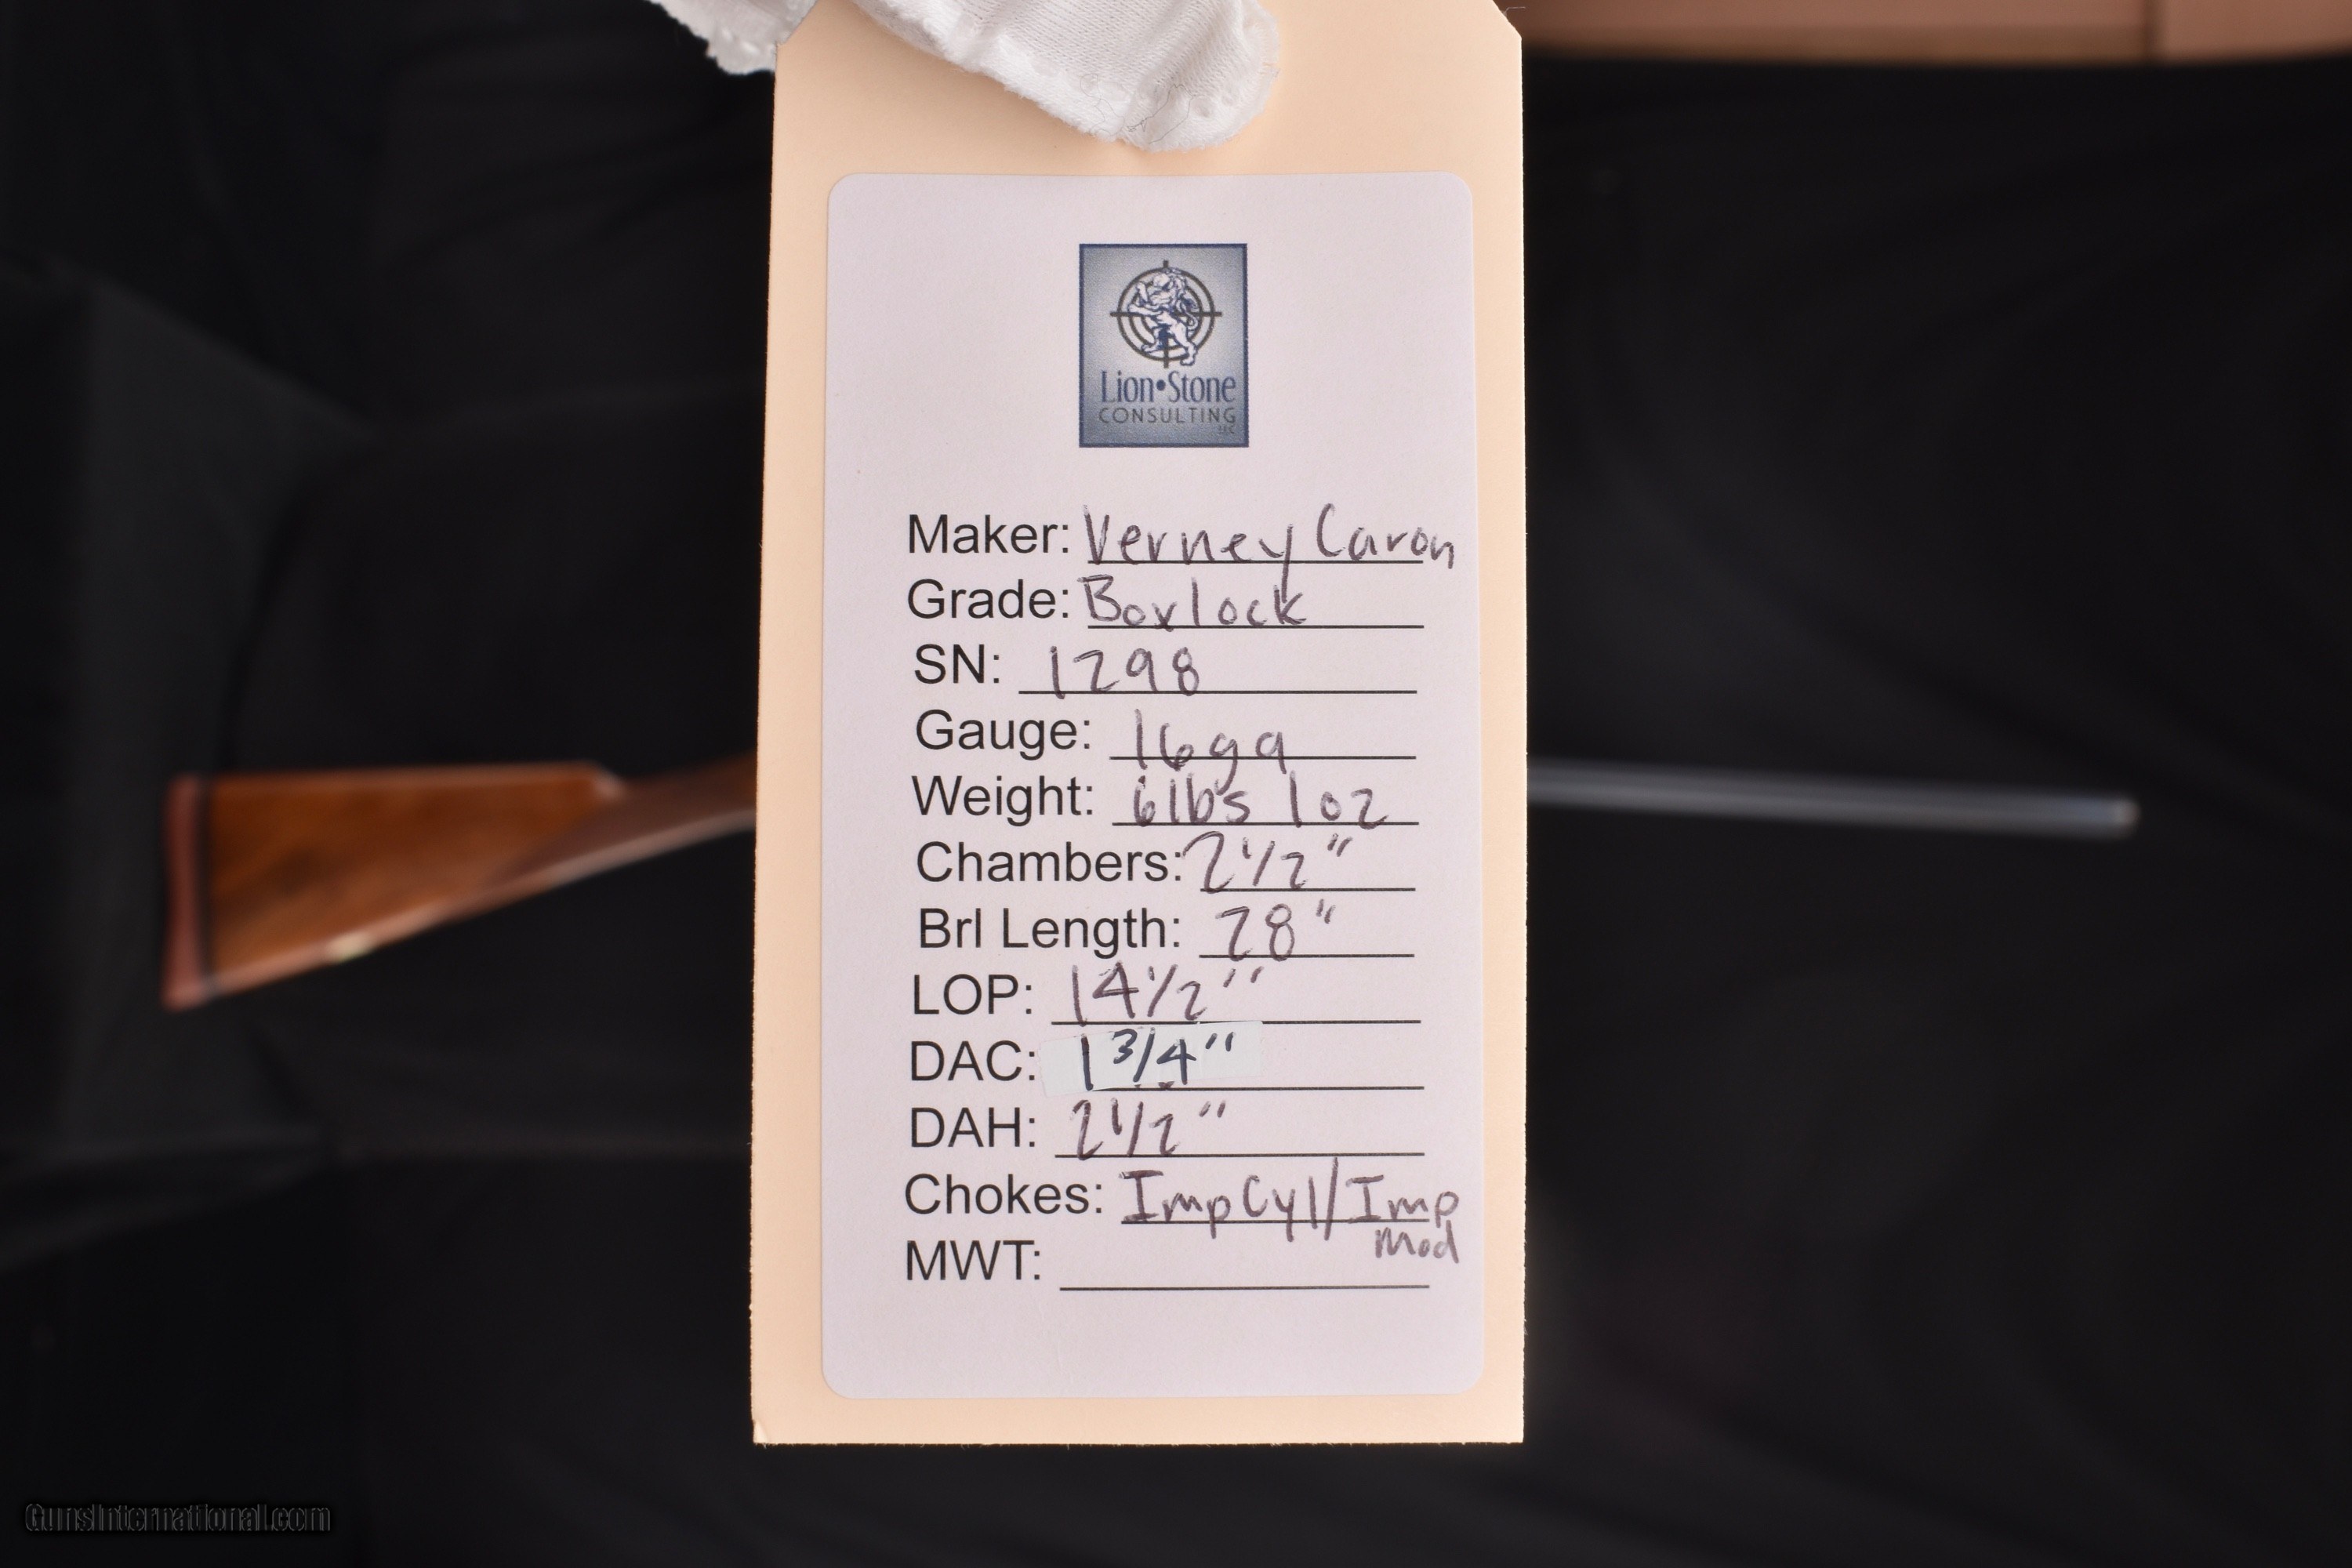 Lion•Stone
CONSULTING
LLC
Maker: Verney Caron
Grade: Boxlock
SN: 1298
Gauge: 16ga
Weight: 6lbs 1oz
Chambers: 2 1/2"
Brl Length: 28"
LOP: 14 1/2"
DAC: 1 3/4"
DAH: 2 1/2"
Chokes: Imp Cyl/Imp
Mod
MWT:
GunsInternational.com